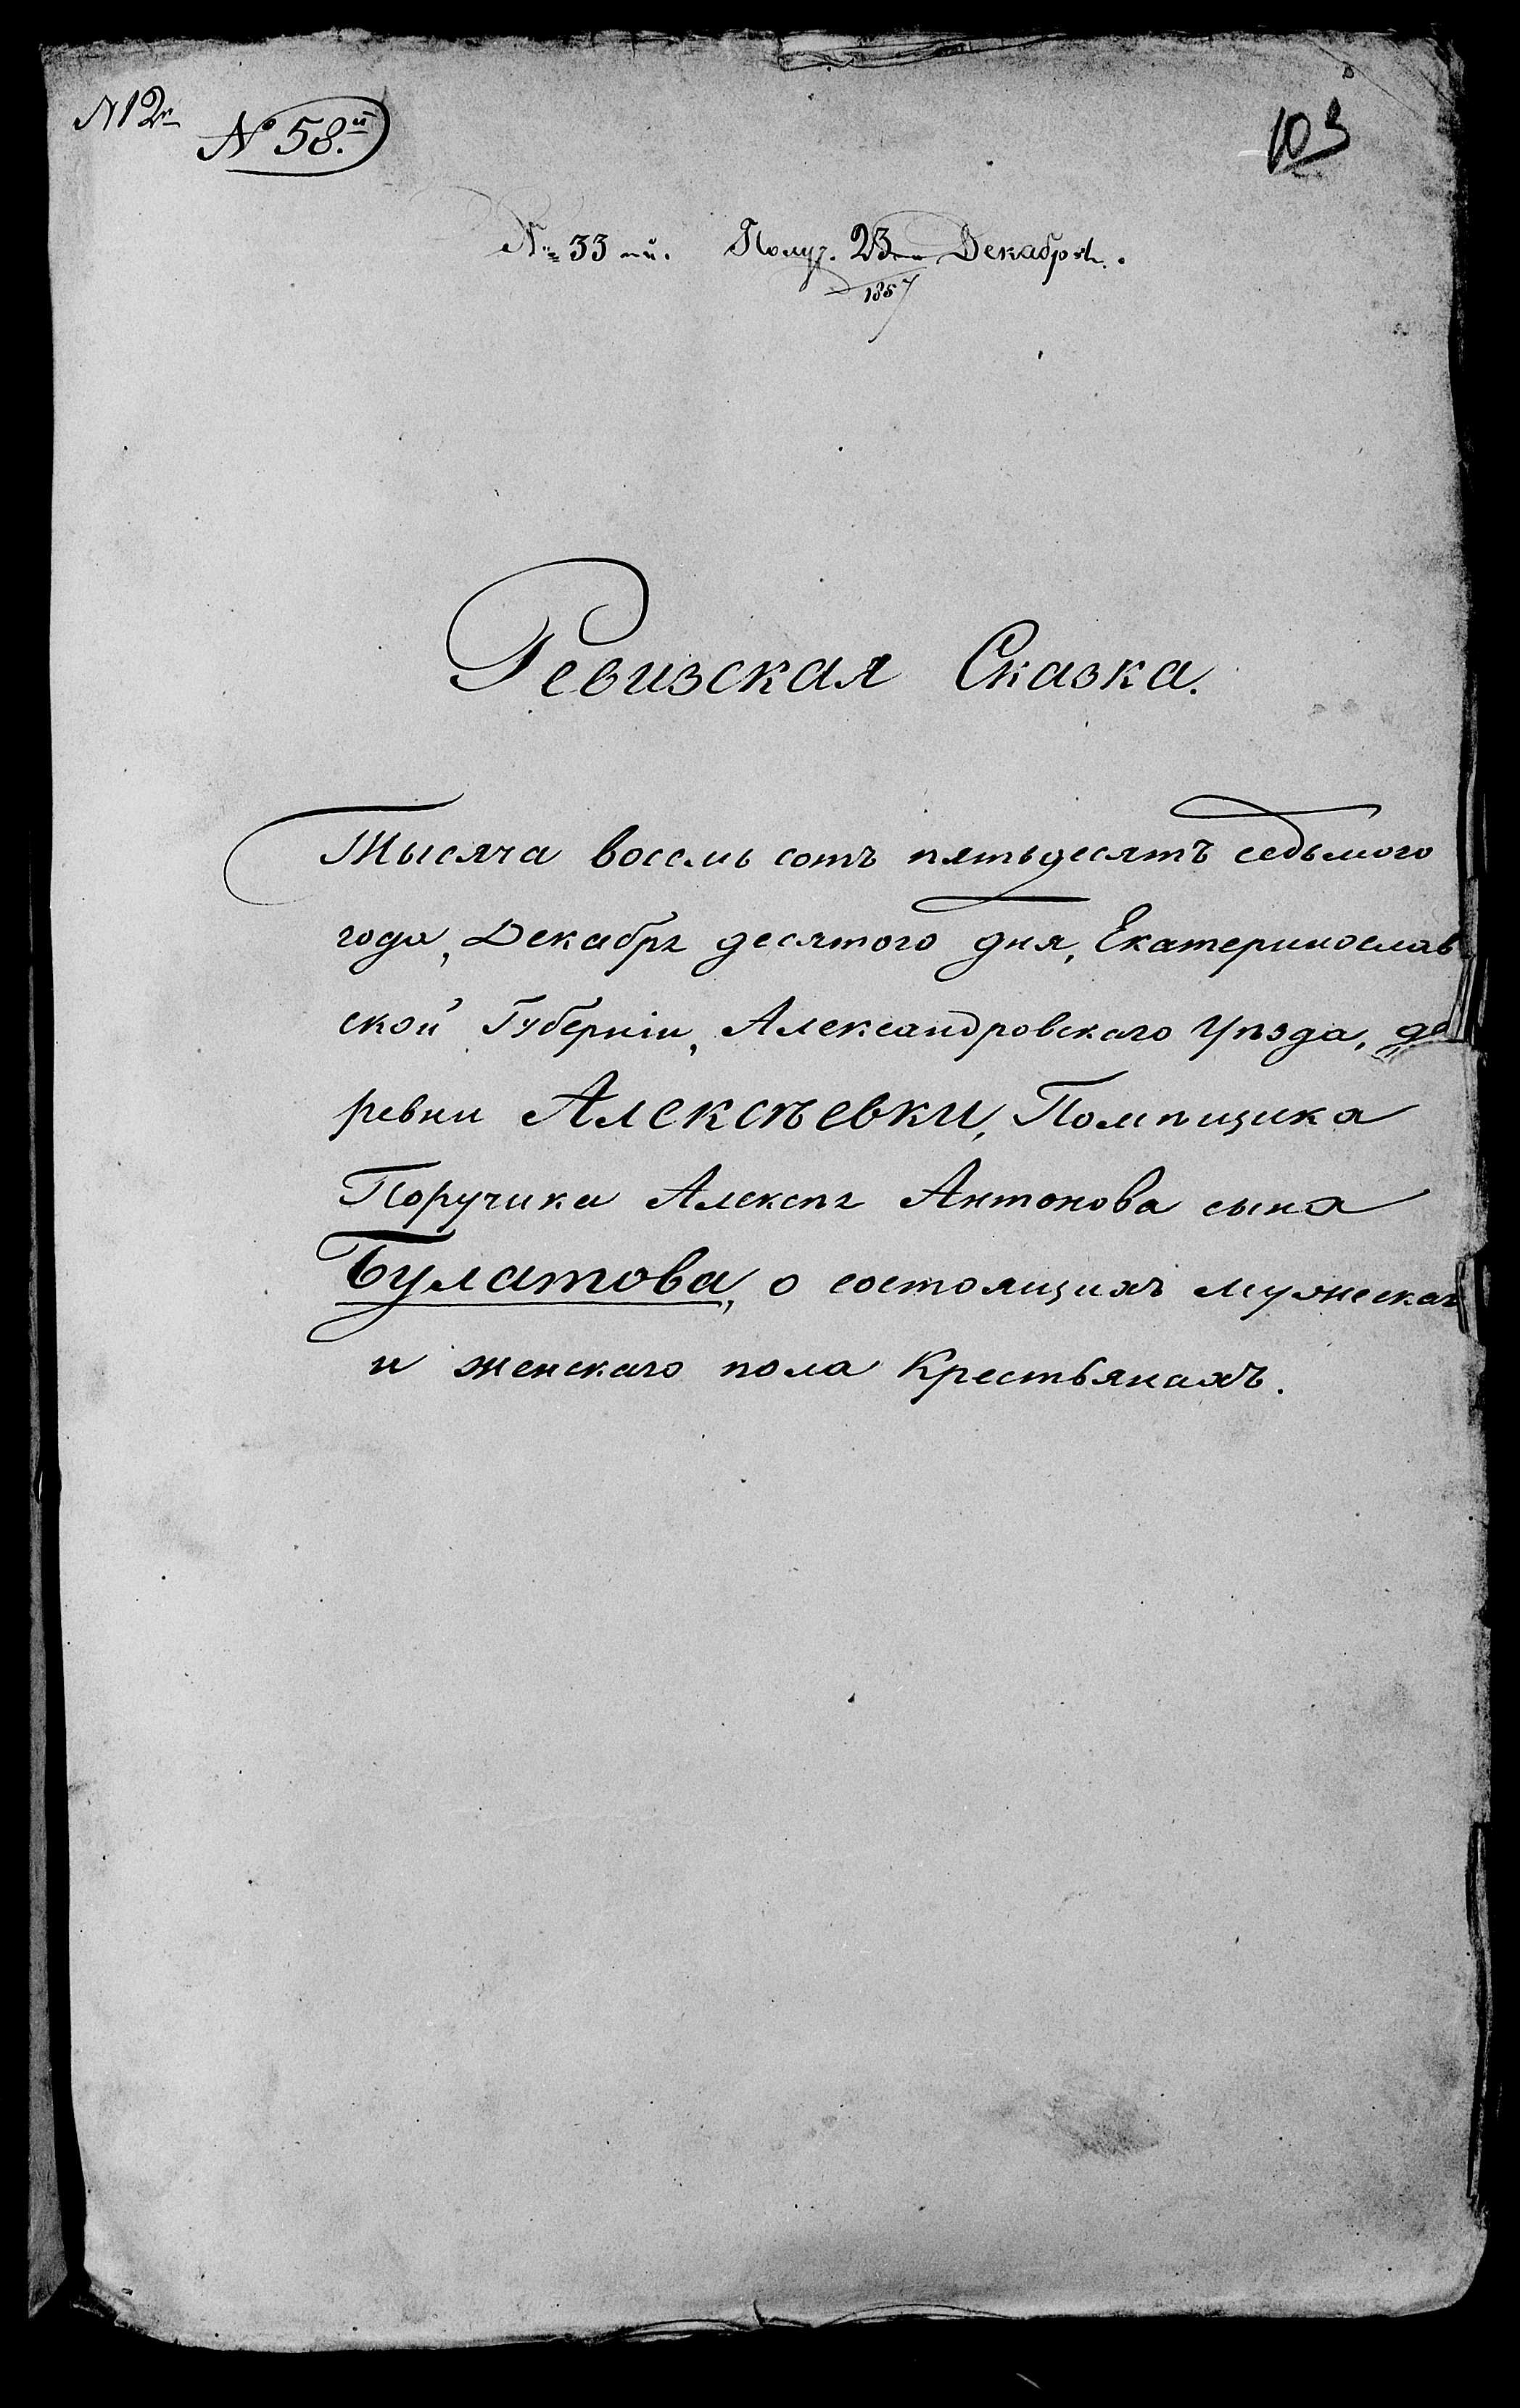 N 12й
№ 58.й
103
№ 33-й. Получ. 23 Декабря.
1857
Ревизская Сказка.
Тысяча восемь сотъ пятьдесятъ седьмого
года, Декабря десятого дня, Екатеринослав
ской Губерніи, Александровскаго Уѣзда, де
ревни Алексѣевки, Помѣщика
Поручика Алексѣя Антонова сына
Булатова, о состоящихъ мужескаго
и женскаго пола Крестьянахъ.